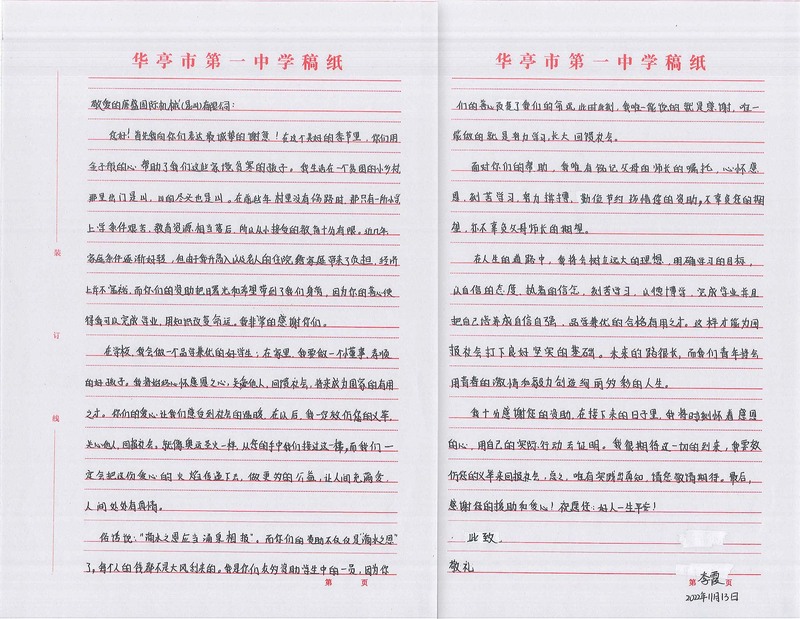 华亭市第一中学稿纸
敬爱的盛国际机械(昆山)有限公司:
您好!首先向你们表达最诚挚的谢意!在这个美好的季节里,你们用
金子般的心帮助了我们这些家境贫寒的孩子。我生活在一个贫困的小乡村
那里出门是山,目的尽头也是山。在前些年村里没有修路时,那只有一所小学
上学条件艰苦,教育资源相当落后,所以从小接受的教育十分有限。近几年
家庭条件逐渐好转,但由于我升高入以及名人的住院给家庭带来了负担,经济
上并不富裕,而你们的资助把日曙光和希望带到了我们身旁,因为你的善心使
得我可以完成学业,用知识改变命运。我非常的感谢你们。
在学校,我会做一个品学兼优的好学生;在家里,我要做一个懂事、孝顺
的好孩子。我将始终心怀感恩之心,关爱他人,回馈社会,将来成为国家的有用
之才。你们的爱心让我们感受到社会的温暖,在以后,我一定效仿您的义举,
关心他人,回报社会。就像奥运圣火一样,从您的手中我们接过这一棒,而我们一
定会把这份爱心的火焰传递下去,做更多的公益,让人间充满爱,
人间处处有真情。
俗话说:“滴水之恩应当涌泉相报”。而你们的资助不仅仅是“滴水之恩”
了,每个人的钱都不是大风刮来的。我是你们众多资助学生中的一员,因为你
第 页
装
订
线
华亭市第一中学稿纸
们的善心改变了我们的命运,此时此刻,我唯一能说的就是感谢,唯一
能做的就是努力学习,长大回馈社会。
面对你们的帮助,我唯有铭记父母的师长的嘱托,心怀感
恩,刻苦学习,努力拼搏,勤俭节约珍惜您的资助,不辜负您的期
望,你不辜负父母师长的期望。
在人生的道路中,我将会树立远大的理想,用确学习的目标,
以自信的态度,执着的信念,刻苦学习,以德博学,完成学业并且
把自己培养成自信自强,品学兼优的合格有用之才。这样才能为回
报社会打下良好坚实的基础。未来的路很长,而我们青年将会
用青春的激情和毅力创造绚丽多彩的人生。
我十分感谢您的资助,在接下来的日子里,我将时刻怀着感恩
的心,用自己的实际行动去证明。我很期待这一切的到来,我要效
仿您的义举来回报社会,总之,唯有实践出真知,请您敬请期待。最后,
感谢您的援助和爱心!祝愿您:好人一生平安!
此致
敬礼
第 页
李霞
2022年11月13日